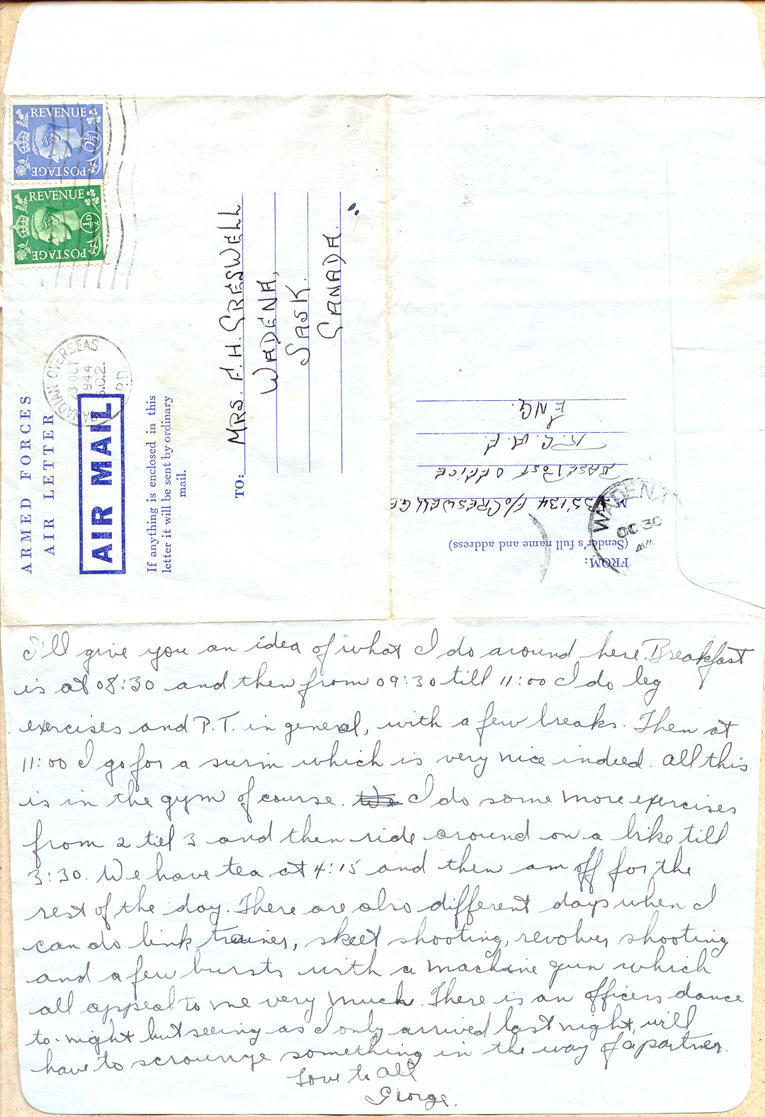 REVENUE
2½D
POSTAGE
REVENUE
½D
POSTAGE
CANADIAN OVERSEAS
OCT
1944
S.C.2.
P.O.
ARMED FORCES
AIR LETTER
AIR MAIL
If anything is enclosed in this
letter it will be sent by ordinary
mail.
TO:
MRS. F. H. CRESWELL
WADENA,
SASK.
CANADA.
FROM:
(Sender's full name and address)
F/O CRESWELL G E
BASE POST OFFICE
R. C. A. F.
ENG.
WADENA
OC 30
I'll give you an idea of what I do around here. Breakfast
is at 08:30 and then from 09:30 till 11:00 I do leg
exercises and P.T. in general, with a few breaks. Then at
11:00 I go for a swim which is very nice indeed. All this
is in the gym of course. I do some more exercises
from 2 till 3 and then ride around on a bike till
3:30. We have tea at 4:15 and then am off for the
rest of the day. There are also different days when I
can do link trainer, skeet shooting, revolver shooting
and a few bursts with a machine gun which
all appeal to me very much. There is an officers dance
to-night but seeing as I only arrived last night, will
have to scrounge something in the way of a partner.
Love to all
George.